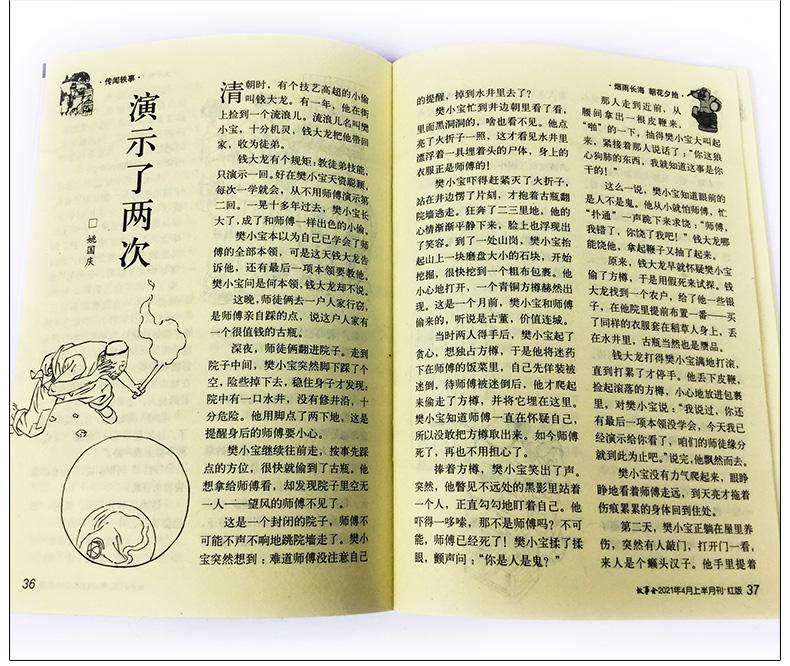 ·传闻轶事·
演示了两次
□ 姚国庆
清朝时，有个技艺高超的小偷
叫钱大龙。有一年，他在街
上捡到一个流浪儿。流浪儿名叫樊
小宝，十分机灵，钱大龙把他带回
家，收为徒弟。
钱大龙有个规矩：教徒弟技能，
只演示一回。好在樊小宝天资聪颖，
每次一学就会，从不用师傅演示第
二回。一晃十多年过去，樊小宝长
大了，成了和师傅一样出色的小偷。
樊小宝本以为自己已学会了师
傅的全部本领，可是这天钱大龙告
诉他，还有最后一项本领要教他。
樊小宝问是何本领，钱大龙却不说。
这晚，师徒俩去一户人家行窃，
是师傅亲自踩的点，说这户人家有
一个很值钱的古瓶。
深夜，师徒俩翻进院子。走到
院子中间，樊小宝突然脚下踩了个
空，险些掉下去，稳住身子才发现：
院中有一口水井，没有修井沿，十
分危险。他用脚点了两下地，这是
提醒身后的师傅要小心。
樊小宝继续往前走，按事先踩
点的方位，很快就偷到了古瓶。他
想拿给师傅看，却发现院子里空无
一人——望风的师傅不见了。
这是一个封闭的院子，师傅不
可能不声不响地跳院墙走了。樊小
宝突然想到：难道师傅没注意自己
36
的提醒，掉到水井里去了？
樊小宝忙到井边朝里看了看，
里面黑洞洞的，啥也看不见。他点
亮了火折子一照，这才看见水井里
漂浮着一具埋着头的尸体，身上的
衣服正是师傅的！
樊小宝吓得赶紧灭了火折子，
站在井边愣了片刻，才抱着古瓶翻
院墙逃走。狂奔了二三里地，他的
心情渐渐平静下来，脸上也浮现出
了笑容。到了一处山岗，樊小宝抬
起山上一块磨盘大小的石块，开始
挖掘，很快挖到一个粗布包裹。他
小心地打开，一个青铜方樽赫然出
现。这是一个月前，樊小宝和师傅
偷来的，听说是古董，价值连城。
当时两人得手后，樊小宝起了
贪心，想独占方樽，于是他将迷药
下在师傅的饭菜里，自己先佯装被
迷倒，待师傅被迷倒后，他才爬起
来偷走了方樽，并将它埋在这里。
樊小宝知道师傅一直在怀疑自己，
所以没敢把方樽取出来。如今师傅
死了，再也不用担心了。
捧着方樽，樊小宝笑出了声。
突然，他瞥见不远处的黑影里站着
一个人，正直勾勾地盯着自己。他
吓得一哆嗦，那不是师傅吗？不可
能，师傅已经死了！樊小宝揉了揉
眼，颤声问："你是人是鬼？"
·烟雨长海 朝花夕拾·
那人走到近前，从
腰间拿出一根皮鞭来，
"啪"的一下，抽得樊小宝大叫起
来，紧接着那人说话了："你这狼
心狗肺的东西，我就知道这事是你
干的！"
这么一说，樊小宝知道眼前的
是人不是鬼。他从小就怕师傅，忙
"扑通"一声跪下来求饶："师傅，
我错了，你饶了我吧！"钱大龙哪
能饶他，拿起鞭子又抽了起来。
原来，钱大龙早就怀疑樊小宝
偷了方樽，于是用假死来试探。钱
大龙找到一个农户，给了他一些银
子，在他院里提前布置一番——买
了同样的衣服套在稻草人身上，丢
在水井里，古瓶当然也是赝品。
钱大龙打得樊小宝满地打滚，
直到打累了才停手。他丢下皮鞭，
捡起滚落的方樽，小心地放进包裹
里，对樊小宝说："我说过，你还
有最后一项本领没学会，今天我已
经演示给你看了，咱们的师徒缘分
就到此为止吧。"说完，他飘然而去。
樊小宝没有力气爬起来，眼睁
睁地看着师傅走远，到天亮才拖着
伤痕累累的身体回到住处。
第二天，樊小宝正躺在屋里养
伤，突然有人敲门，打开门一看，
来人是个癞头汉子。他手里提着
故事会2021年4月上半月刊·红版 37